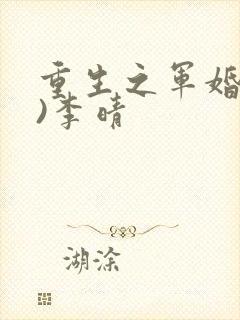 重生之军婚
)李晴
湖涂